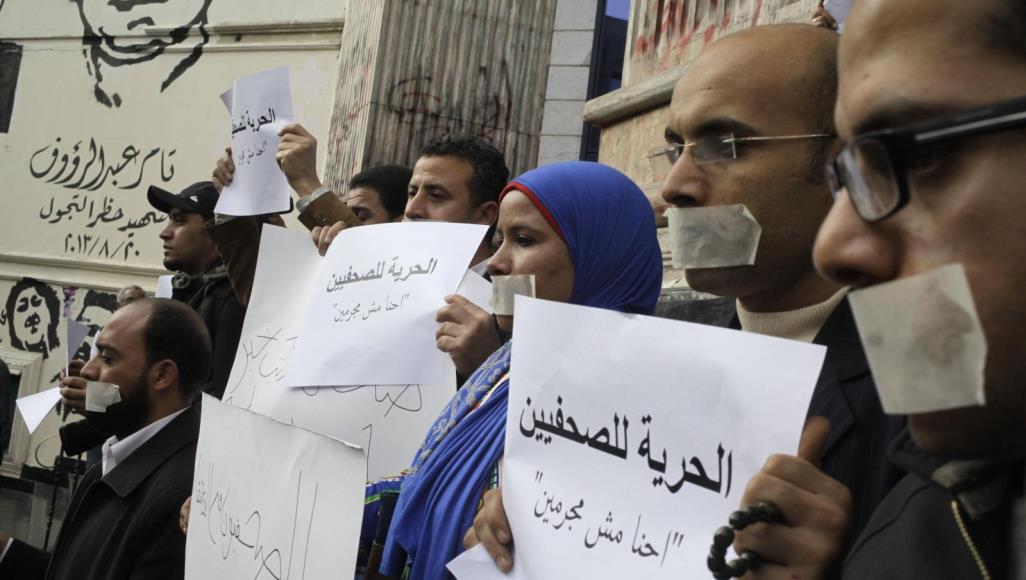 تامر عبد الرؤوف
شهيد حظر التجول
٢٠١٣/٨/٢٠
الحرية للصحفيين
"احنا مش مجرمين"
الحرية للصحفيين
"احنا مش مجرمين"
الحرية للصحفيين
"احنا مش مجرمين"